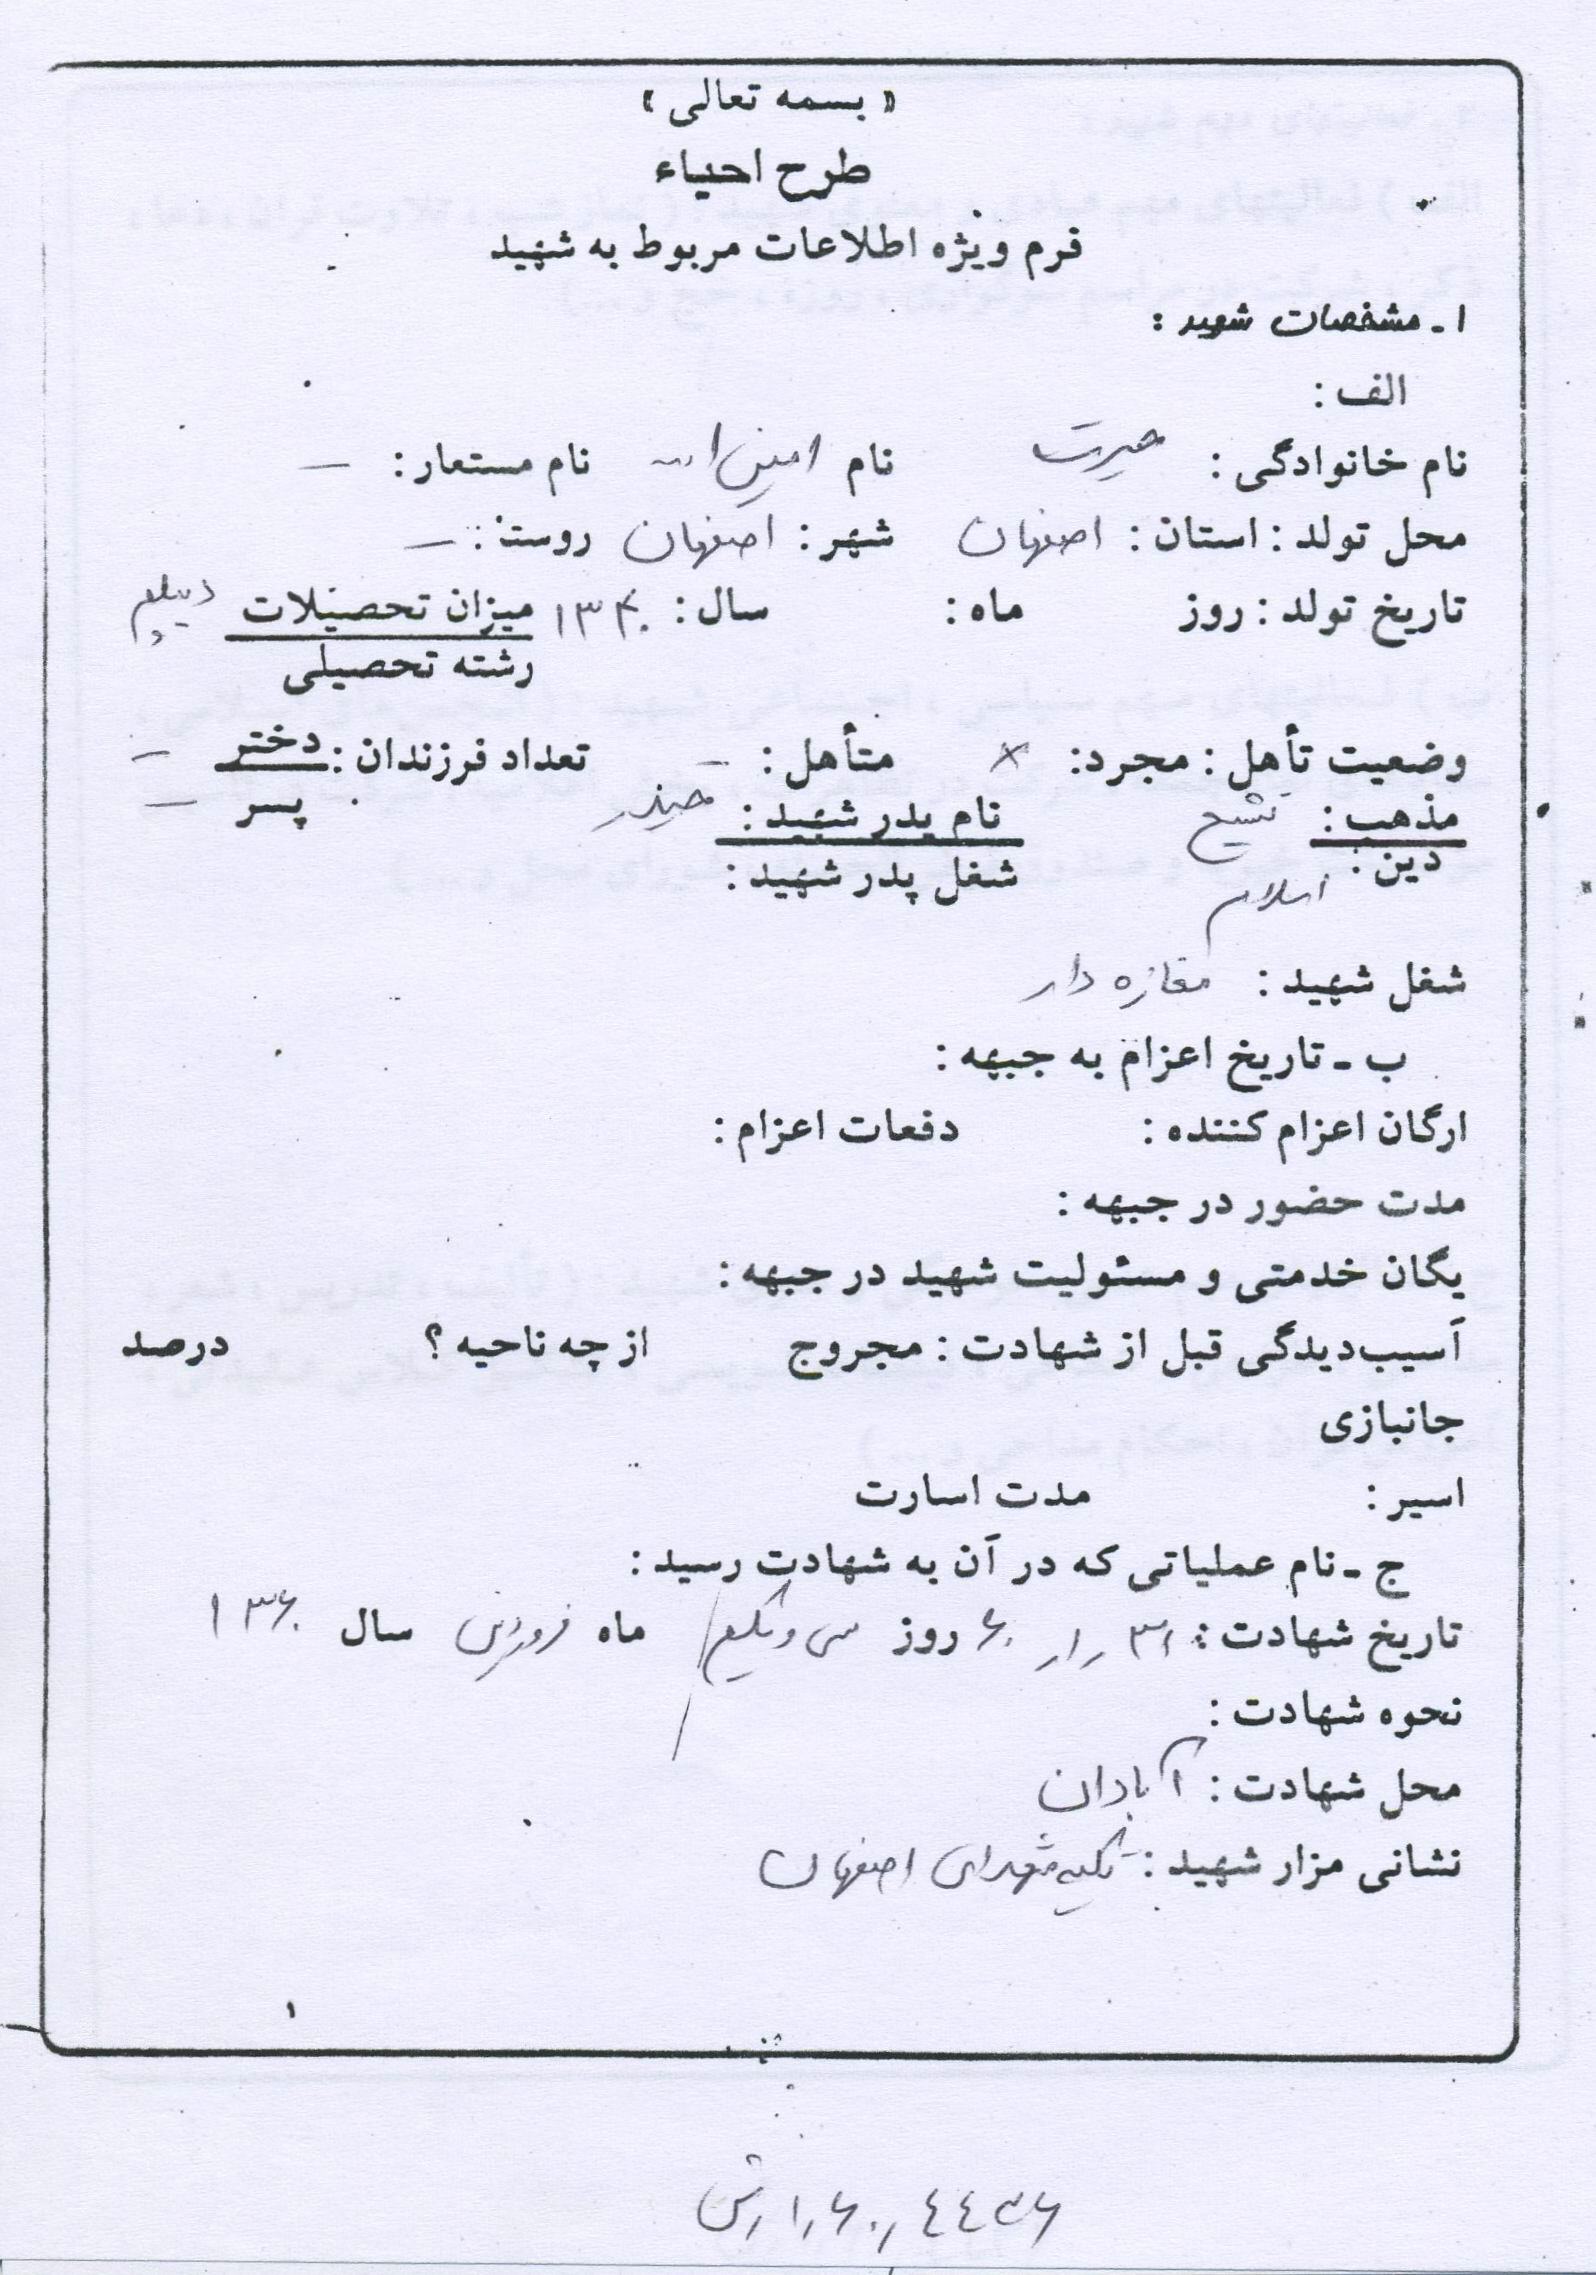 « بسمه تعالی »
طرح احیاء
فرم ویژه اطلاعات مربوط به شهید
۱ ـ مشخصات شهید :
الف :
نام خانوادگی : حیرت نام امین الله نام مستعار : —
محل تولد : استان : اصفهان شهر : اصفهان روستا : —
تاریخ تولد : روز ماه : سال : ۱۳۴۰ میزان تحصیلات دیپلم
رشته تحصیلی
وضعیت تأهل : مجرد : × متأهل : — تعداد فرزندان : دختر —
پسر —
مذهب : تشیع نام پدر شهید : حیدر
دین : اسلام شغل پدر شهید :
شغل شهید : مغازه دار
ب ـ تاریخ اعزام به جبهه :
ارگان اعزام کننده : دفعات اعزام :
مدت حضور در جبهه :
یگان خدمتی و مسئولیت شهید در جبهه :
آسیب‌دیدگی قبل از شهادت : مجروح از چه ناحیه ؟ درصد
جانبازی
اسیر : مدت اسارت
ج ـ نام عملیاتی که در آن به شهادت رسید :
تاریخ شهادت : ۳۱ ر ۱ر ۶۰ روز سی و یکم ماه فروردین سال ۱۳۶۰
نحوه شهادت :
محل شهادت : آبادان
نشانی مزار شهید : تکیه شهدای اصفهان
۱